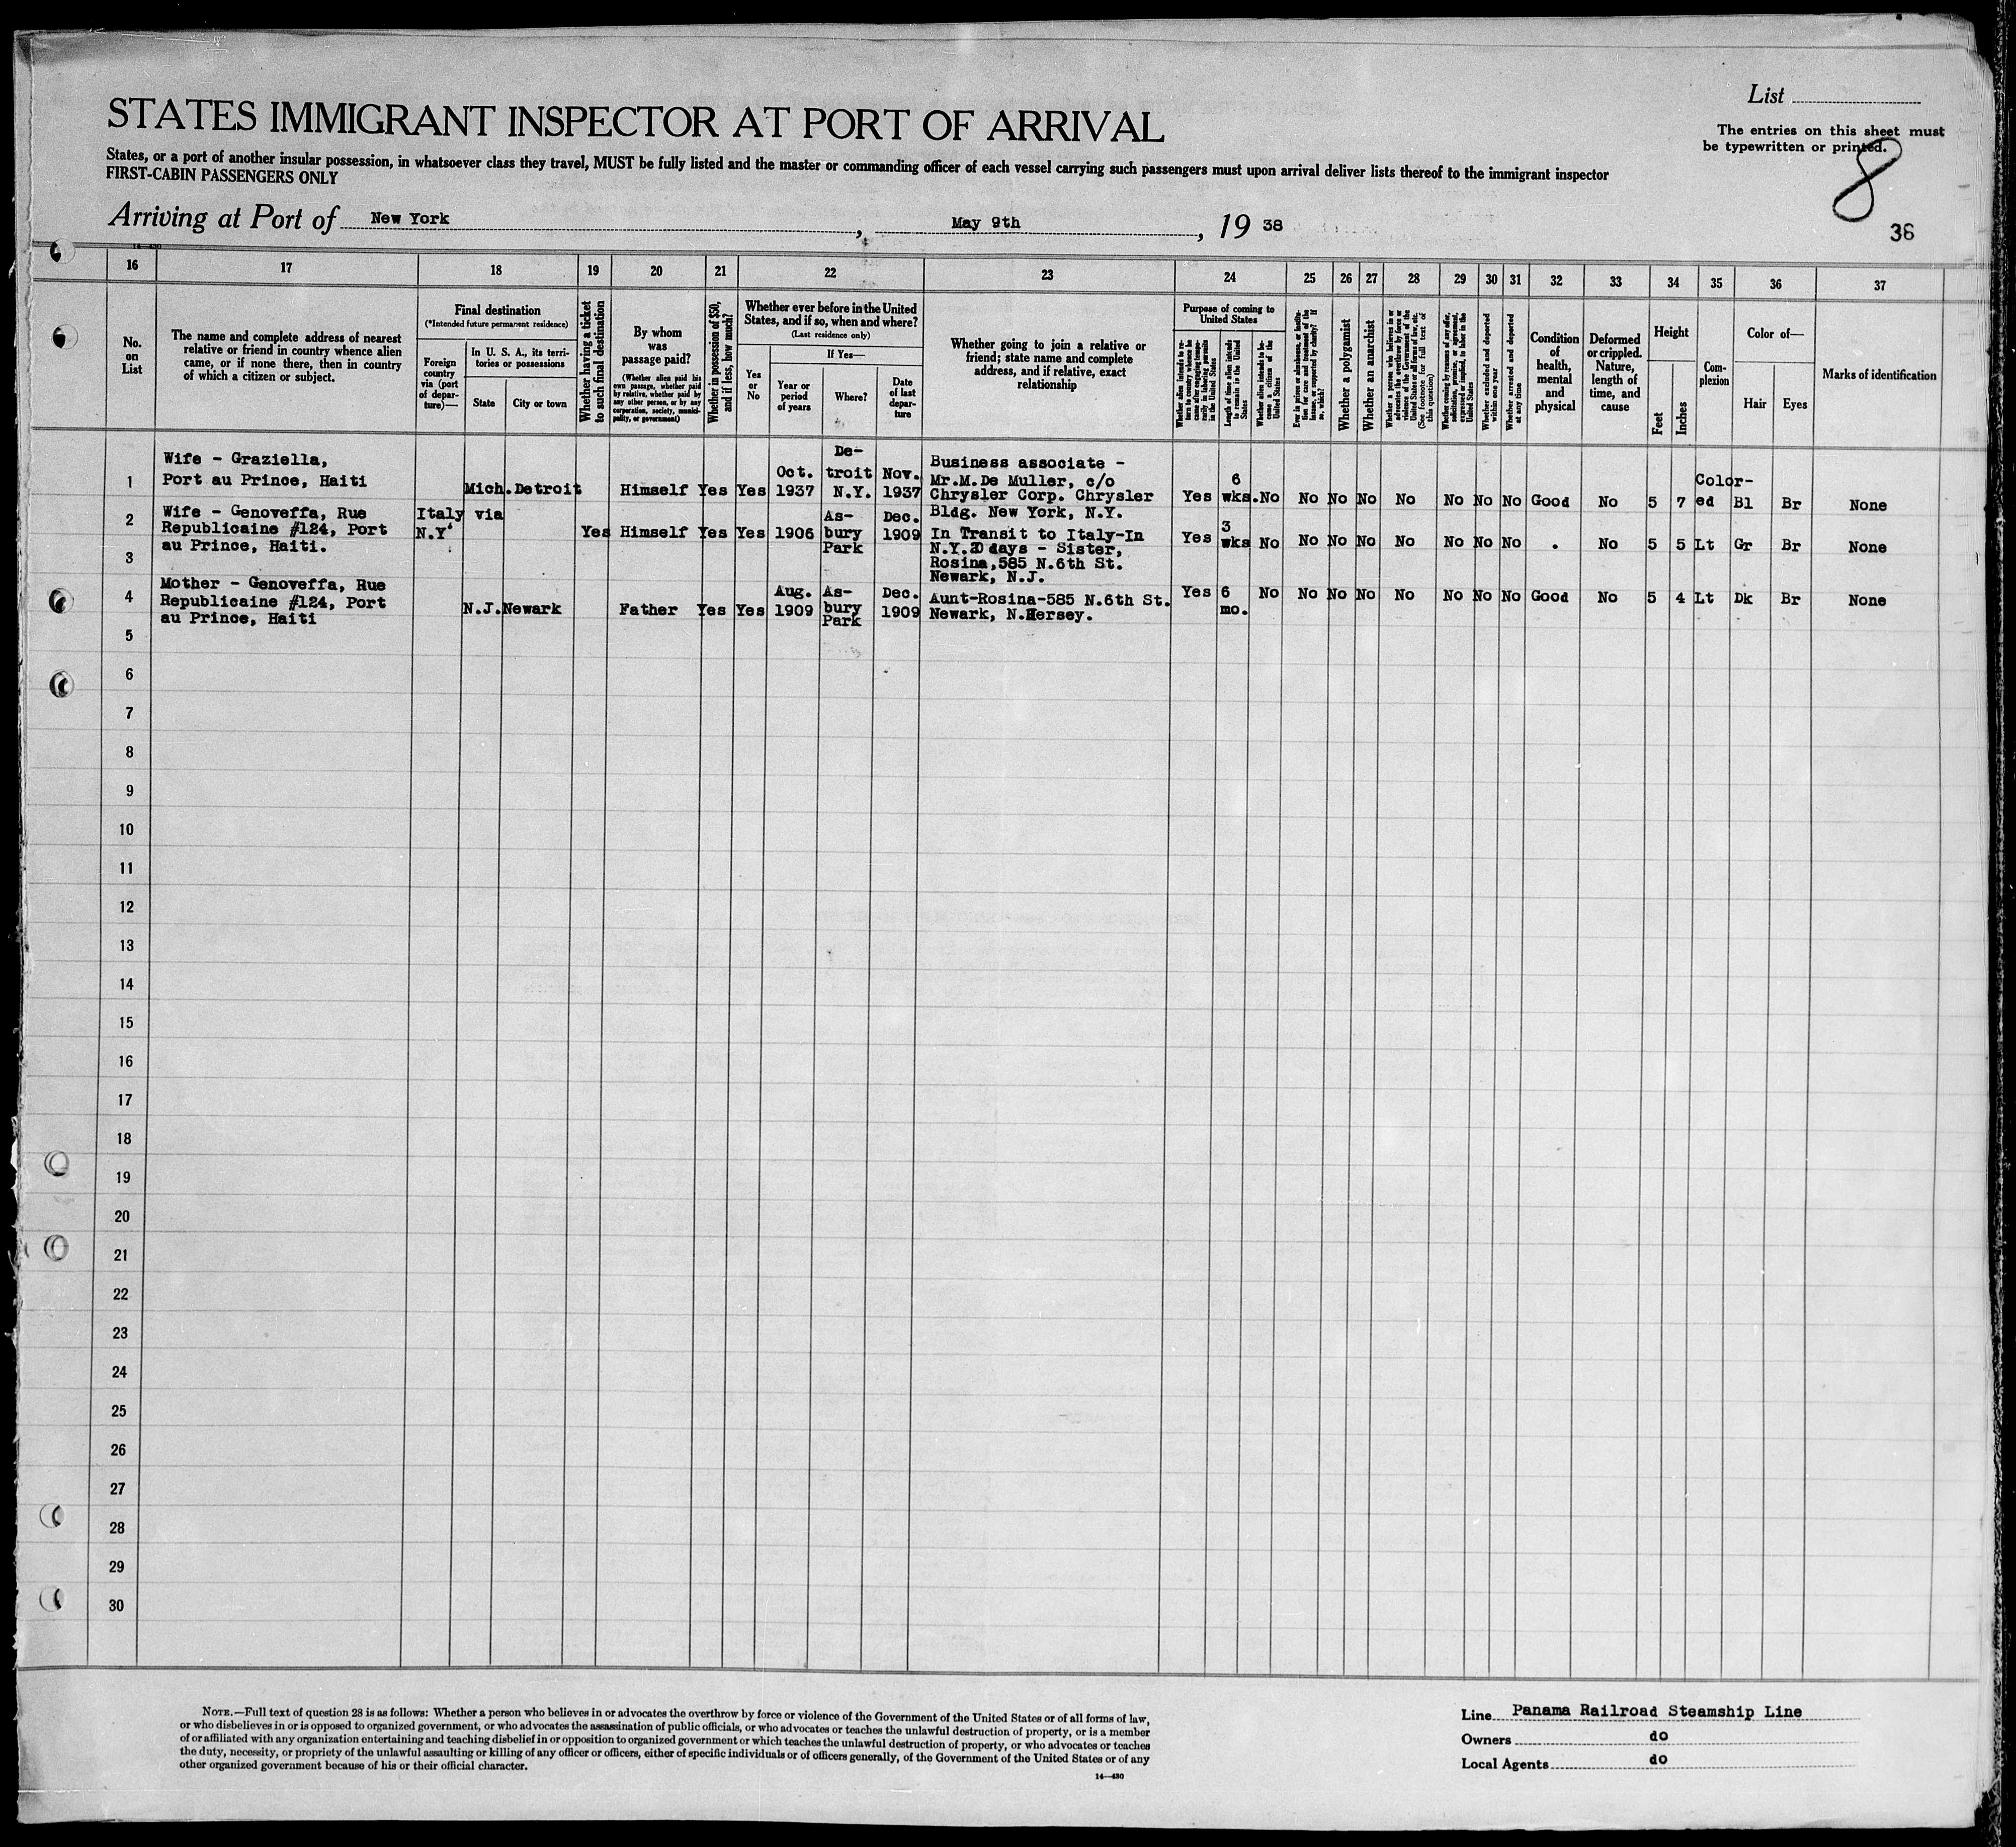 List
STATES IMMIGRANT INSPECTOR AT PORT OF ARRIVAL
The entries on this sheet must
be typewritten or printed.
States, or a port of another insular possession, in whatsoever class they travel, MUST be fully listed and the master or commanding officer of each vessel carrying such passengers must upon arrival deliver lists thereof to the immigrant inspector
FIRST-CABIN PASSENGERS ONLY
8
Arriving at Port of New York, May 9th, 19 38
36
16 17 18 19 20 21 22 23 24 25 26 27 28 29 30 31 32 33 34 35 36 37
No.
on
List
The name and complete address of nearest
relative or friend in country whence alien
came, or if none there, then in country
of which a citizen or subject.
Final destination
(*Intended future permanent residence)
Foreign
country
via (port
of depar-
ture)—
In U. S. A., its terri-
tories or possessions
State City or town
Whether having a ticket
to such final destination
By whom
was
passage paid?
(Whether alien paid his
own passage, whether paid
by relative, whether paid by
any other person, or by any
corporation, society, munici-
pality, or government)
Whether in possession of $50,
and if less, how much?
Whether ever before in the United
States, and if so, when and where?
(Last residence only)
Yes
or
No
If Yes—
Year or
period
of years
Where?
Date
of last
depar-
ture
Whether going to join a relative or
friend; state name and complete
address, and if relative, exact
relationship
Purpose of coming to
United States
Length of time alien intends
to remain in the United
States
Whether alien intends to be-
come a citizen of the
United States
Whether a polygamist
Whether an anarchist
(See footnote for full text of
this question)
Whether excluded and deported
within one year
Whether arrested and deported
at any time
Condition
of
health,
mental
and
physical
Deformed
or crippled.
Nature,
length of
time, and
cause
Height
Feet Inches
Com-
plexion
Color of—
Hair Eyes
Marks of identification
1 Wife - Graziella,
Port au Prince, Haiti
Mich. Detroit Himself Yes Yes
Oct.
1937
De-
troit
N.Y.
Nov.
1937
Business associate -
Mr.M.De Muller, c/o
Chrysler Corp. Chrysler
Bldg. New York, N.Y.
Yes 6
wks. No No No No No No No No Good No 5 7 Color-
ed Bl Br None
2 Wife - Genoveffa, Rue
Republicaine #124, Port
au Prince, Haiti.
Italy via
N.Y.
Yes Himself Yes Yes 1906
As-
bury
Park
Dec.
1909
In Transit to Italy-In
N.Y.20 days - Sister,
Rosina,585 N.6th St.
Newark, N.J.
Yes 3
wks No No No No No No No No . No 5 5 Lt Gr Br None
3
4 Mother - Genoveffa, Rue
Republicaine #124, Port
au Prince, Haiti
N.J. Newark Father Yes Yes
Aug.
1909
As-
bury
Park
Dec.
1909
Aunt-Rosina-585 N.6th St.
Newark, N.Hersey.
Yes 6
mo. No No No No No No No No Good No 5 4 Lt Dk Br None
5
6
7
8
9
10
11
12
13
14
15
16
17
18
19
20
21
22
23
24
25
26
27
28
29
30
NOTE.—Full text of question 28 is as follows: Whether a person who believes in or advocates the overthrow by force or violence of the Government of the United States or of all forms of law,
or who disbelieves in or is opposed to organized government, or who advocates the assassination of public officials, or who advocates or teaches the unlawful destruction of property, or is a member
of or affiliated with any organization entertaining and teaching disbelief in or opposition to organized government or which teaches the unlawful destruction of property, or who advocates or teaches
the duty, necessity, or propriety of the unlawful assaulting or killing of any officer or officers, either of specific individuals or of officers generally, of the Government of the United States or of any
other organized government because of his or their official character.
14—430
Line Panama Railroad Steamship Line
Owners do
Local Agents do